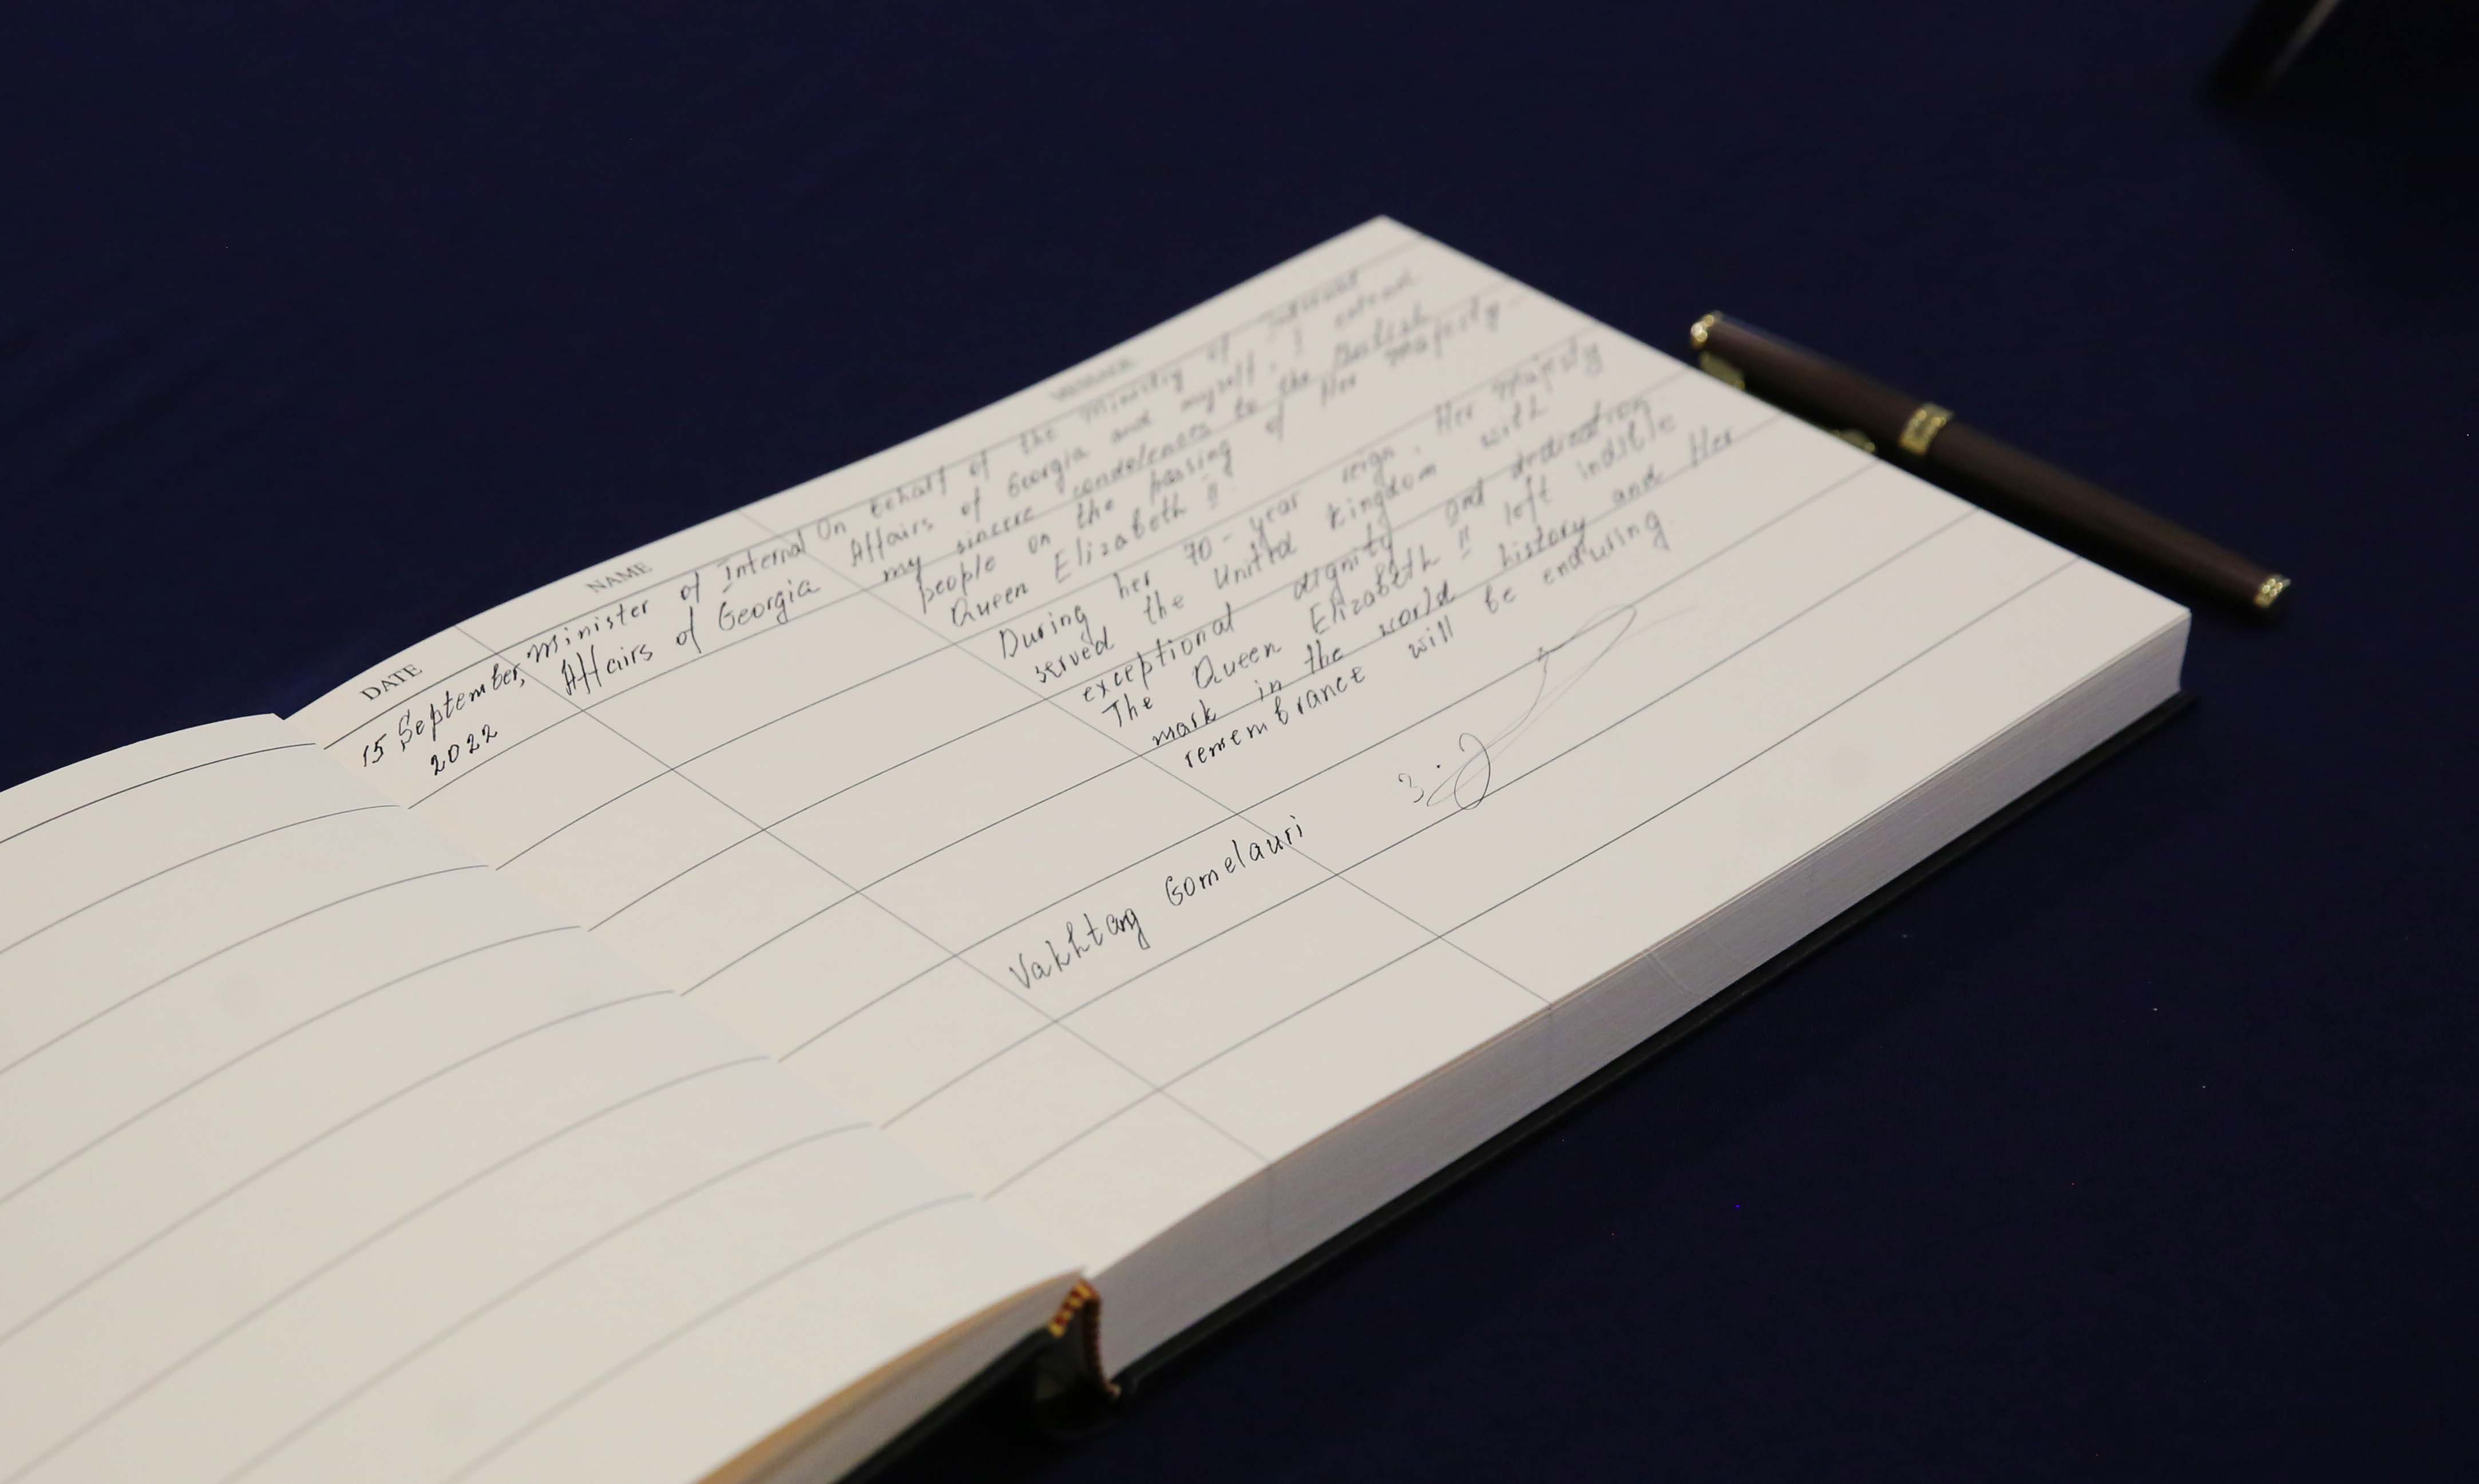 DATE
NAME
MESSAGE
15 September,
2022
Minister of Internal
Affairs of Georgia
On behalf of the Ministry of Internal
Affairs of Georgia and myself, I extend
my sincere condolences to the British
people on the passing of Her Majesty
Queen Elizabeth II.
During her 70-year reign, Her Majesty
served the United Kingdom with
exceptional dignity and dedication
The Queen Elizabeth II left indible
mark in the world history and Her
remembrance will be enduring
Vakhtang Gomelauri